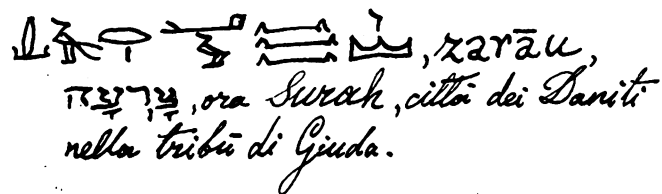 , zarāu,
צָרְעָה, ora Surah, città dei Daniti
nella tribù di Giuda.